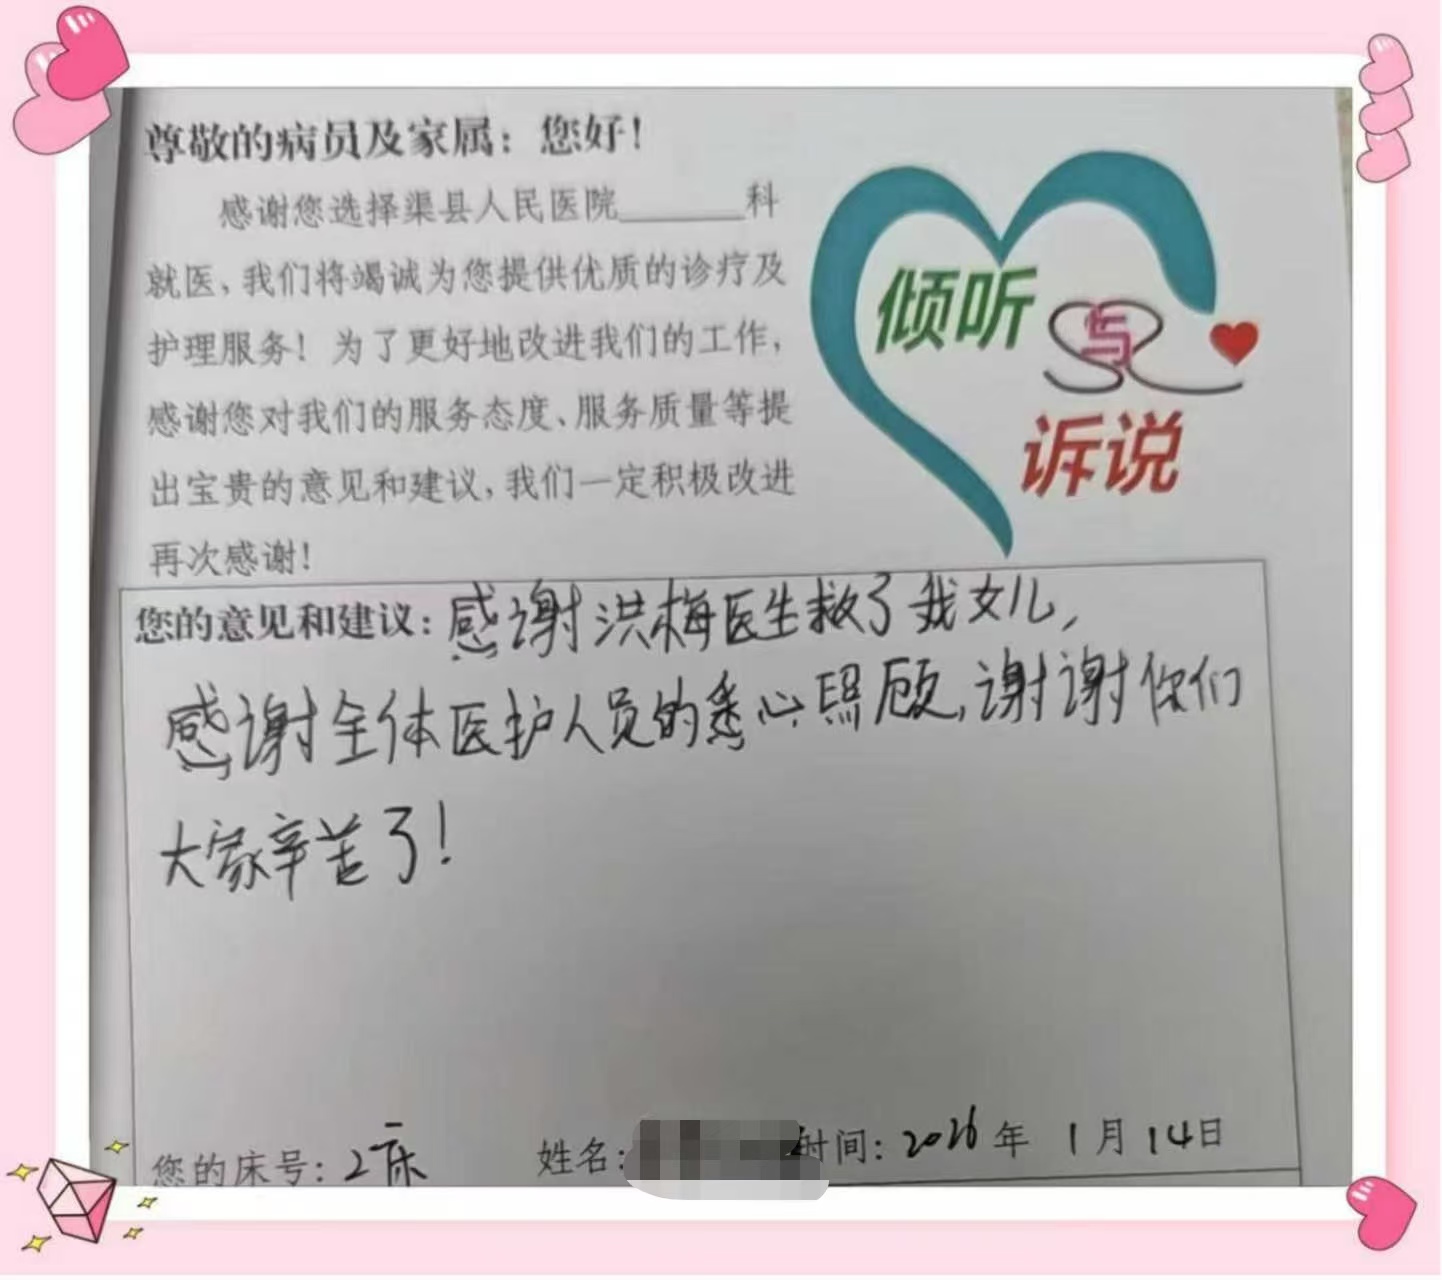 尊敬的病员及家属：您好！
感谢您选择渠县人民医院______科
就医，我们将竭诚为您提供优质的诊疗及
护理服务！为了更好地改进我们的工作，
感谢您对我们的服务态度、服务质量等提
出宝贵的意见和建议，我们一定积极改进
再次感谢！
倾听
与
诉说
您的意见和建议：感谢洪梅医生救了我女儿，
感谢全体医护人员的悉心照顾，谢谢你们
大家辛苦了！
您的床号：2床 姓名： 时间：2026年 1月 14日